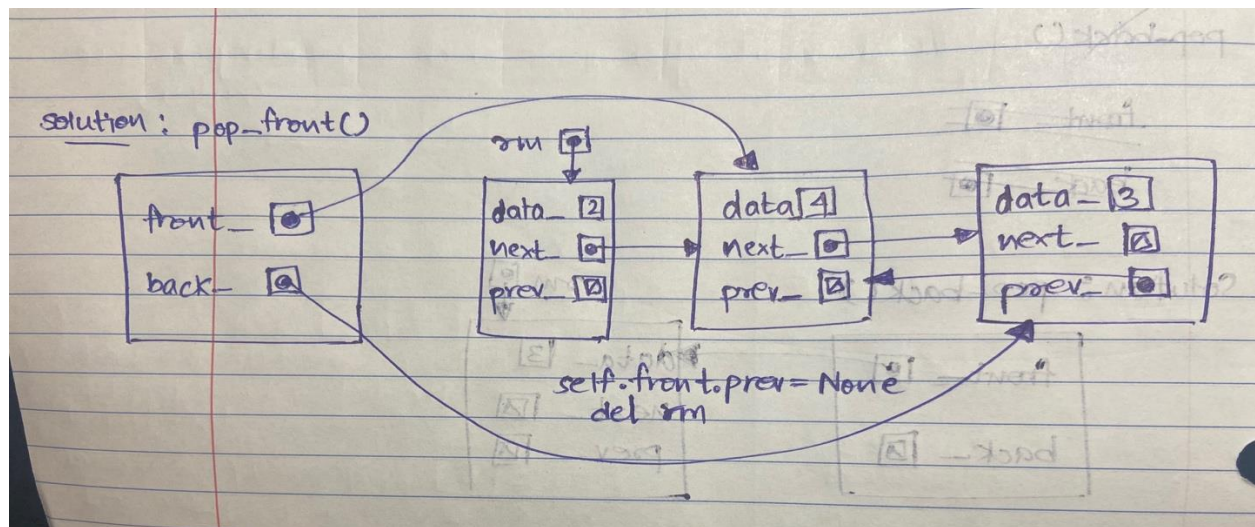 solution: pop_front()
rm
front_
back_
data_ 2
next_
prev_
data 4
next_
prev_
data_ 3
next_
prev_
self.front.prev = None
del rm